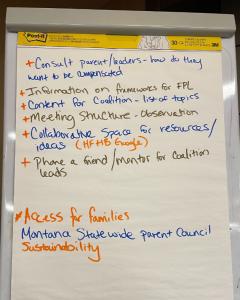 Post-it
3M
+ Consult parent/leaders - how do they
want to be compensated
+ Information on frameworks for FPL
+ Content for Coalition - list of topics
+ Meeting Structure - observation
+ Collaborative Space for resources/
ideas (HFHB Google)
+ Phone a friend/mentor for Coalition
leads
* Access for families
Montana Statewide parent Council
Sustainability